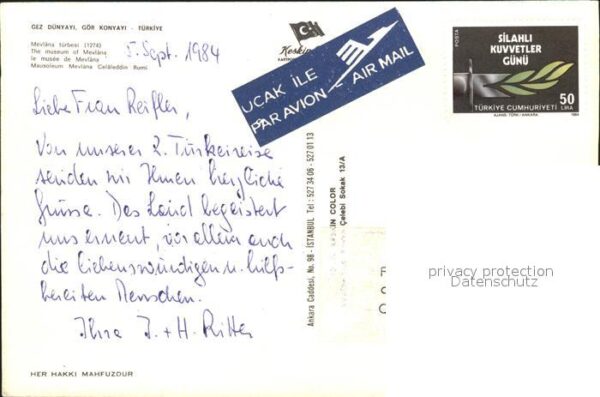 GEZ DÜNYAYI, GÖR KONYAYI - TÜRKİYE
Mevlâna türbesi (1274)
The museum of Mevlâna
le musée de Mevlâna
Mausoleum Mevlâna Celâleddin Rumi
5. Sept. 1984
Keskin
UÇAK İLE
PAR AVION
AIR MAIL
POSTA
SİLAHLI
KUVVETLER
GÜNÜ
TÜRKİYE CUMHURİYETİ
50
LİRA
1984
Liebe Frau Reifler,
Von unserer 2. Türkeireise
senden wir Ihnen herzliche
Grüsse. Das Land begeistert
uns erneut, vor allem auch
die liebenswürdigen u. hilfs-
bereiten Menschen.
Ihre J. + H. Ritter
Ankara Caddesi, No. 98 - İSTANBUL Tel: 527 34 06 - 527 01 13
KESKİN COLOR
Çelebi Sokak 13/A
privacy protection
Datenschutz
HER HAKKI MAHFUZDUR